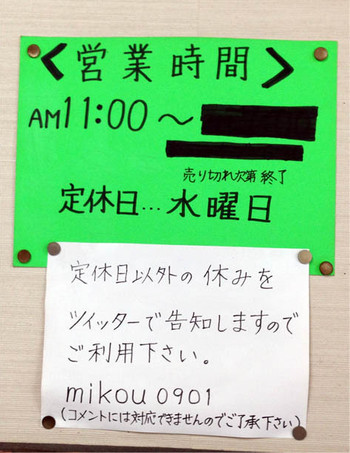 <営業時間>
AM11:00〜
売り切れ次第終了
定休日…水曜日
定休日以外の休みを
ツイッターで告知しますので
ご利用下さい。
mikou0901
(コメントには対応できませんのでご了承下さい)